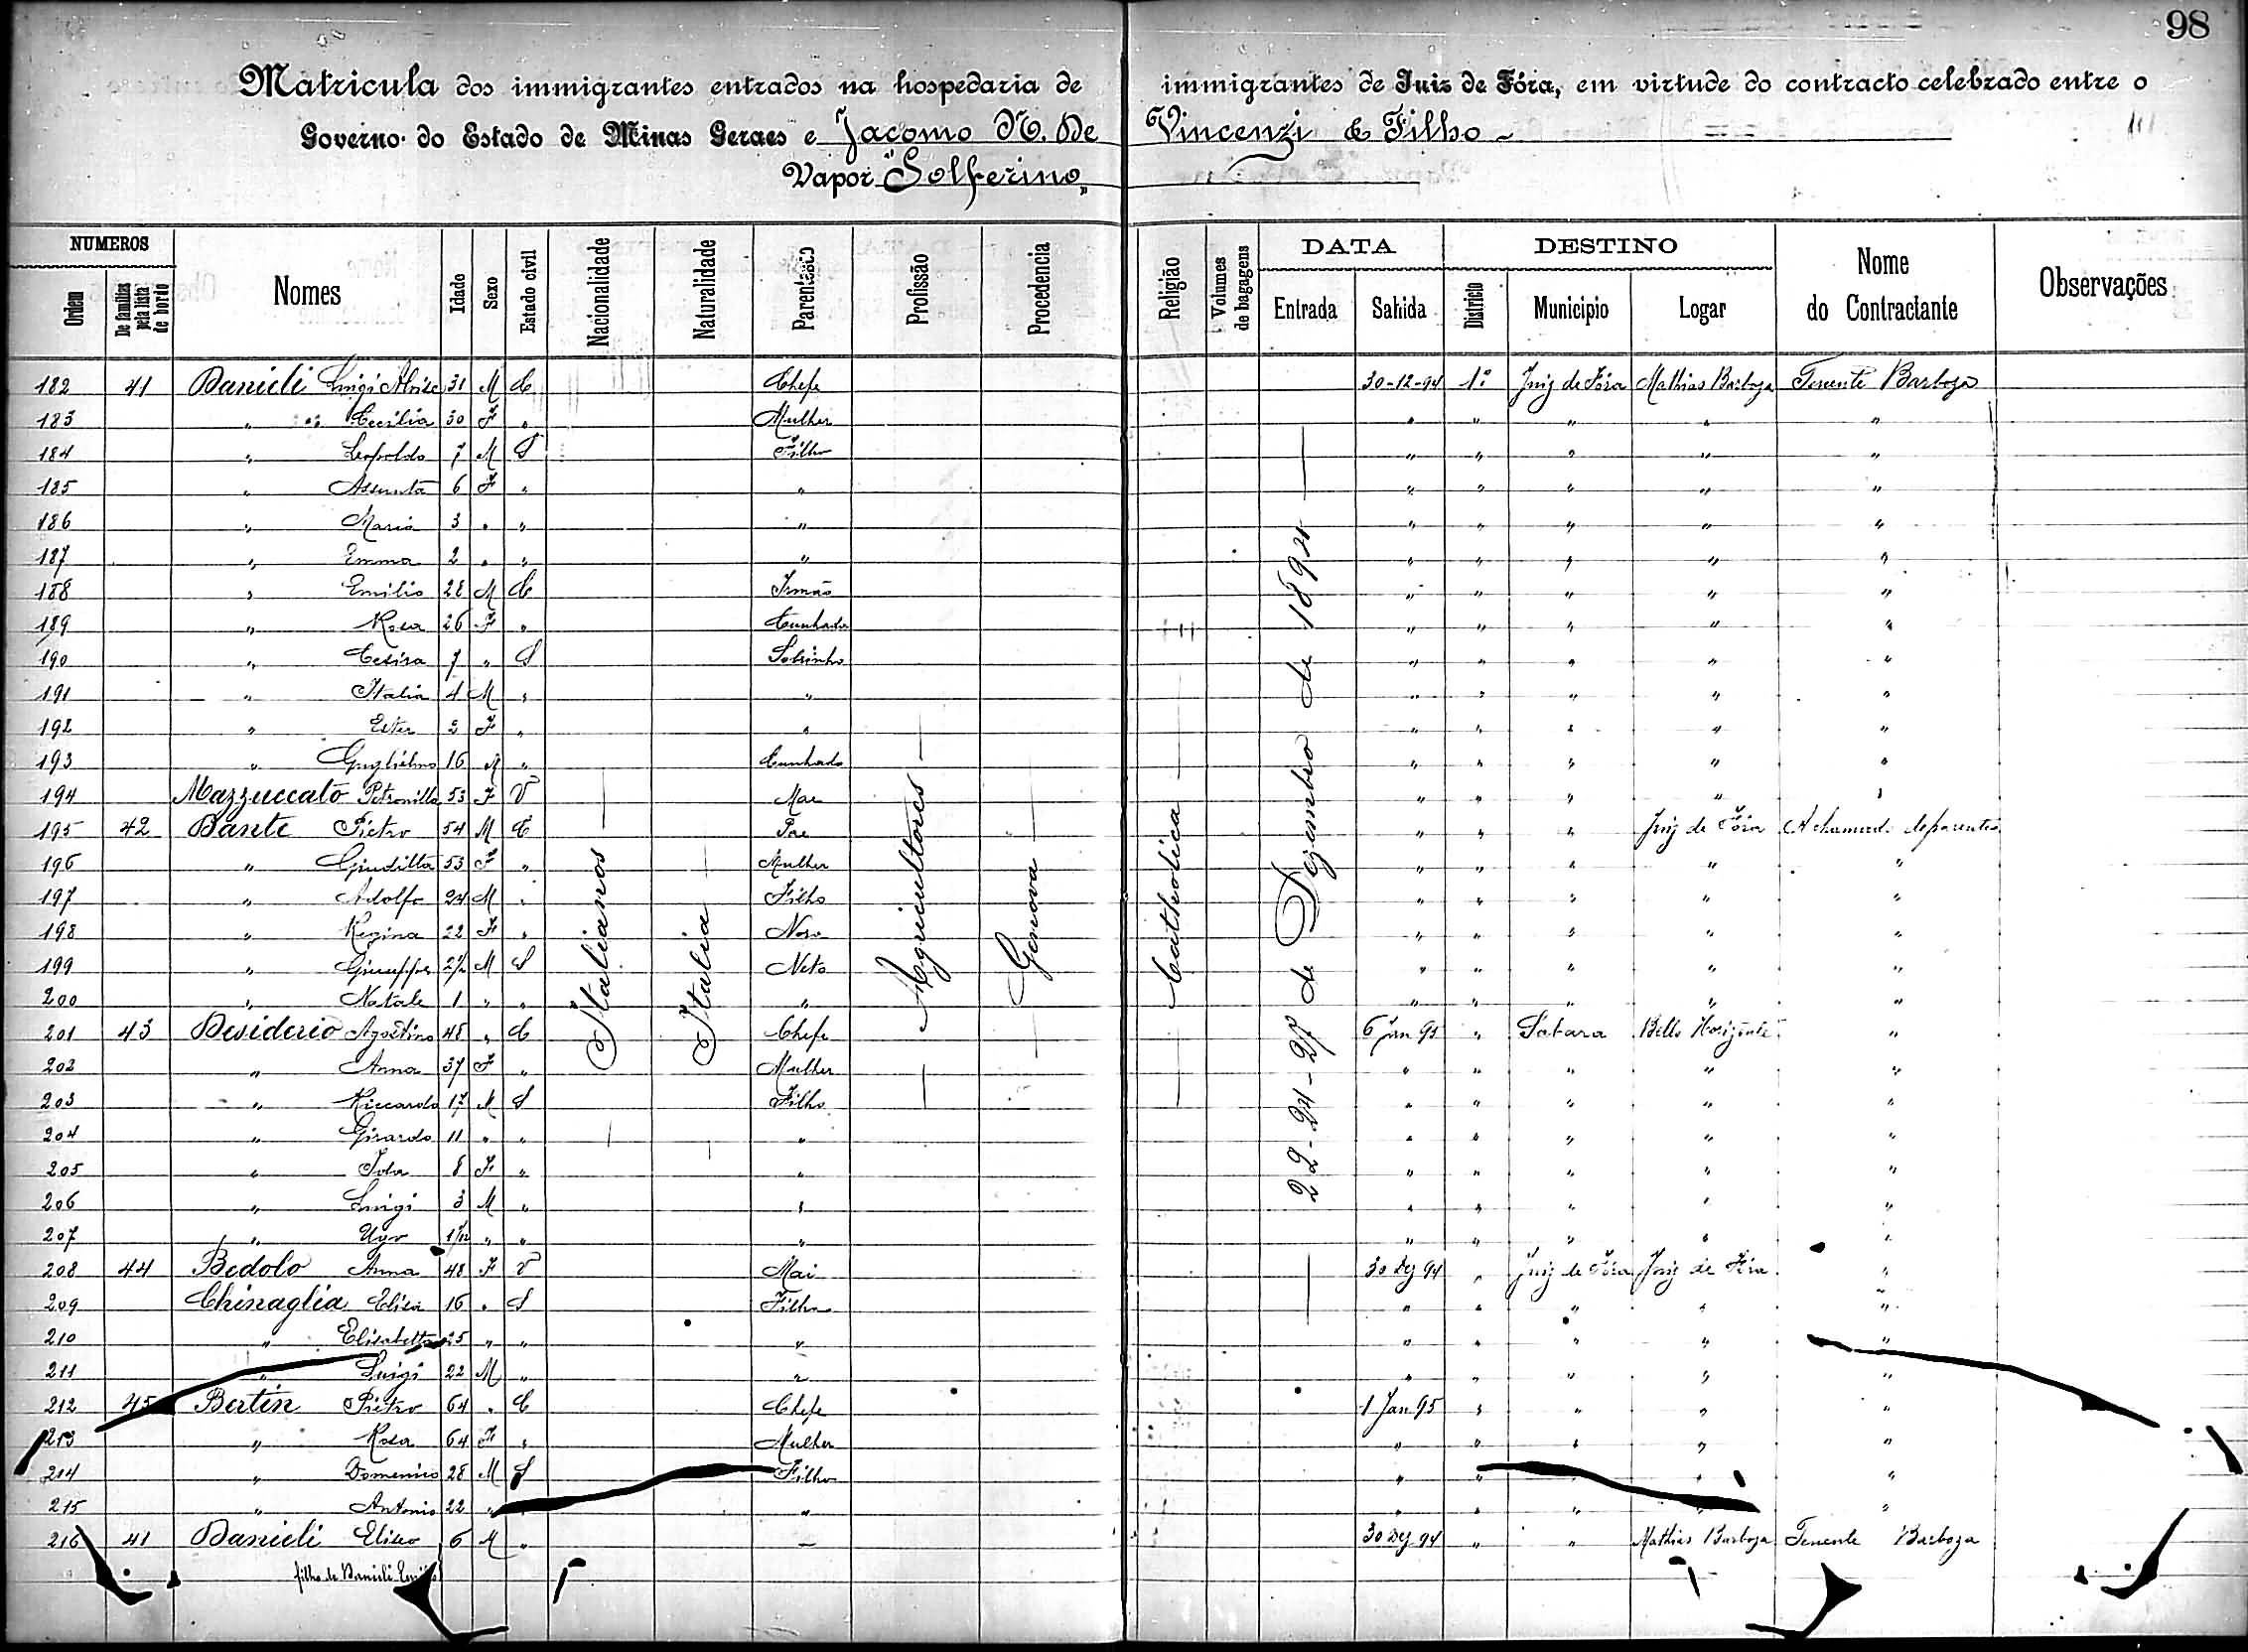 98
Matricula dos immigrantes entrados na hospedaria de immigrantes de Juiz de Fóra, em virtude do contracto celebrado entre o
Governo do Estado de Minas Geraes e Jacomo N. De Vincenzi & Filho
Vapor "Solferino"
NUMEROS DATA DESTINO
Ordem De familias pela lista de bordo Nomes Idade Sexo Estado civil Nacionalidade Naturalidade Parentesco Profissão Procedencia Religião Volumes de bagagens Entrada Sahida Districto Municipio Logar Nome do Contractante Observações
Italianos Italia Agricultores Genova Catholica 22-24-27 de Dezembro de 1894
182 41 Danieli Luigi 31 M C Chefe 30-12-94 1º Juiz de Fóra Mathias Barboza Tenente Barboza
183 " " Cecilia 30 F " Mulher " " " " "
184 " Leopoldo 7 M S Filho " " " " "
185 " Assunta 6 F " " " " " " "
186 " Maria 3 " " " " " " " "
187 " Emma 2 " " " " " " " "
188 " Emilio 28 M C Irmão " " " " "
189 " Rosa 26 F " Cunhada " " " " "
190 " Cesira 7 " S Sobrinho " " " " "
191 " Italia 4 M " " " " " " "
192 " Ester 2 F " " " " " " "
193 " Guglielmo 16 M " Cunhado " " " " "
194 Mazzuccato Petronilla 53 F V Mae " " " " "
195 42 Dante Pietro 54 M C Pae " " " Juiz de Fóra A chamado de parentes
196 " Giuditta 53 F " Mulher " " " " "
197 " Adolfo 24 M " Filho " " " " "
198 " Regina 22 F " Nora " " " " "
199 " Giuseppe M S Neto " " " " "
200 " Natale 1 " " " " " " " "
201 43 Desiderio Agostino 48 " C Chefe 6 Jan 95 " Sabara Bello Horizonte "
202 " Anna 37 F " Mulher " " " " "
203 " Riccardo 17 M S Filho " " " " "
204 " Girardo 11 " " " " " " " "
205 " 8 F " " " " " " "
206 " Luigi 3 M " " " " " " "
207 " Ugo 1/12 " " " " " " " "
208 44 Bedolo Anna 48 F V Mai 30 Dez 94 " Juiz de Fóra Juiz de Fóra "
209 Chinaglia Elisa 16 " S Filha " " " " "
210 " Elisabetta 25 " " " " " " " "
211 " Luigi 22 M " " " " " " "
212 45 Bertin Pietro 64 " C Chefe 1 Jan 95 " " " "
213 " Rosa 64 F " Mulher " " " " "
214 " Domenico 28 M S Filho " " " " "
215 " Antonio 22 " " " " " " " "
216 41 Danieli Eliseo 6 M " — 30 Dez 94 " " Mathias Barboza Tenente Barboza
filho de Danieli Emilio